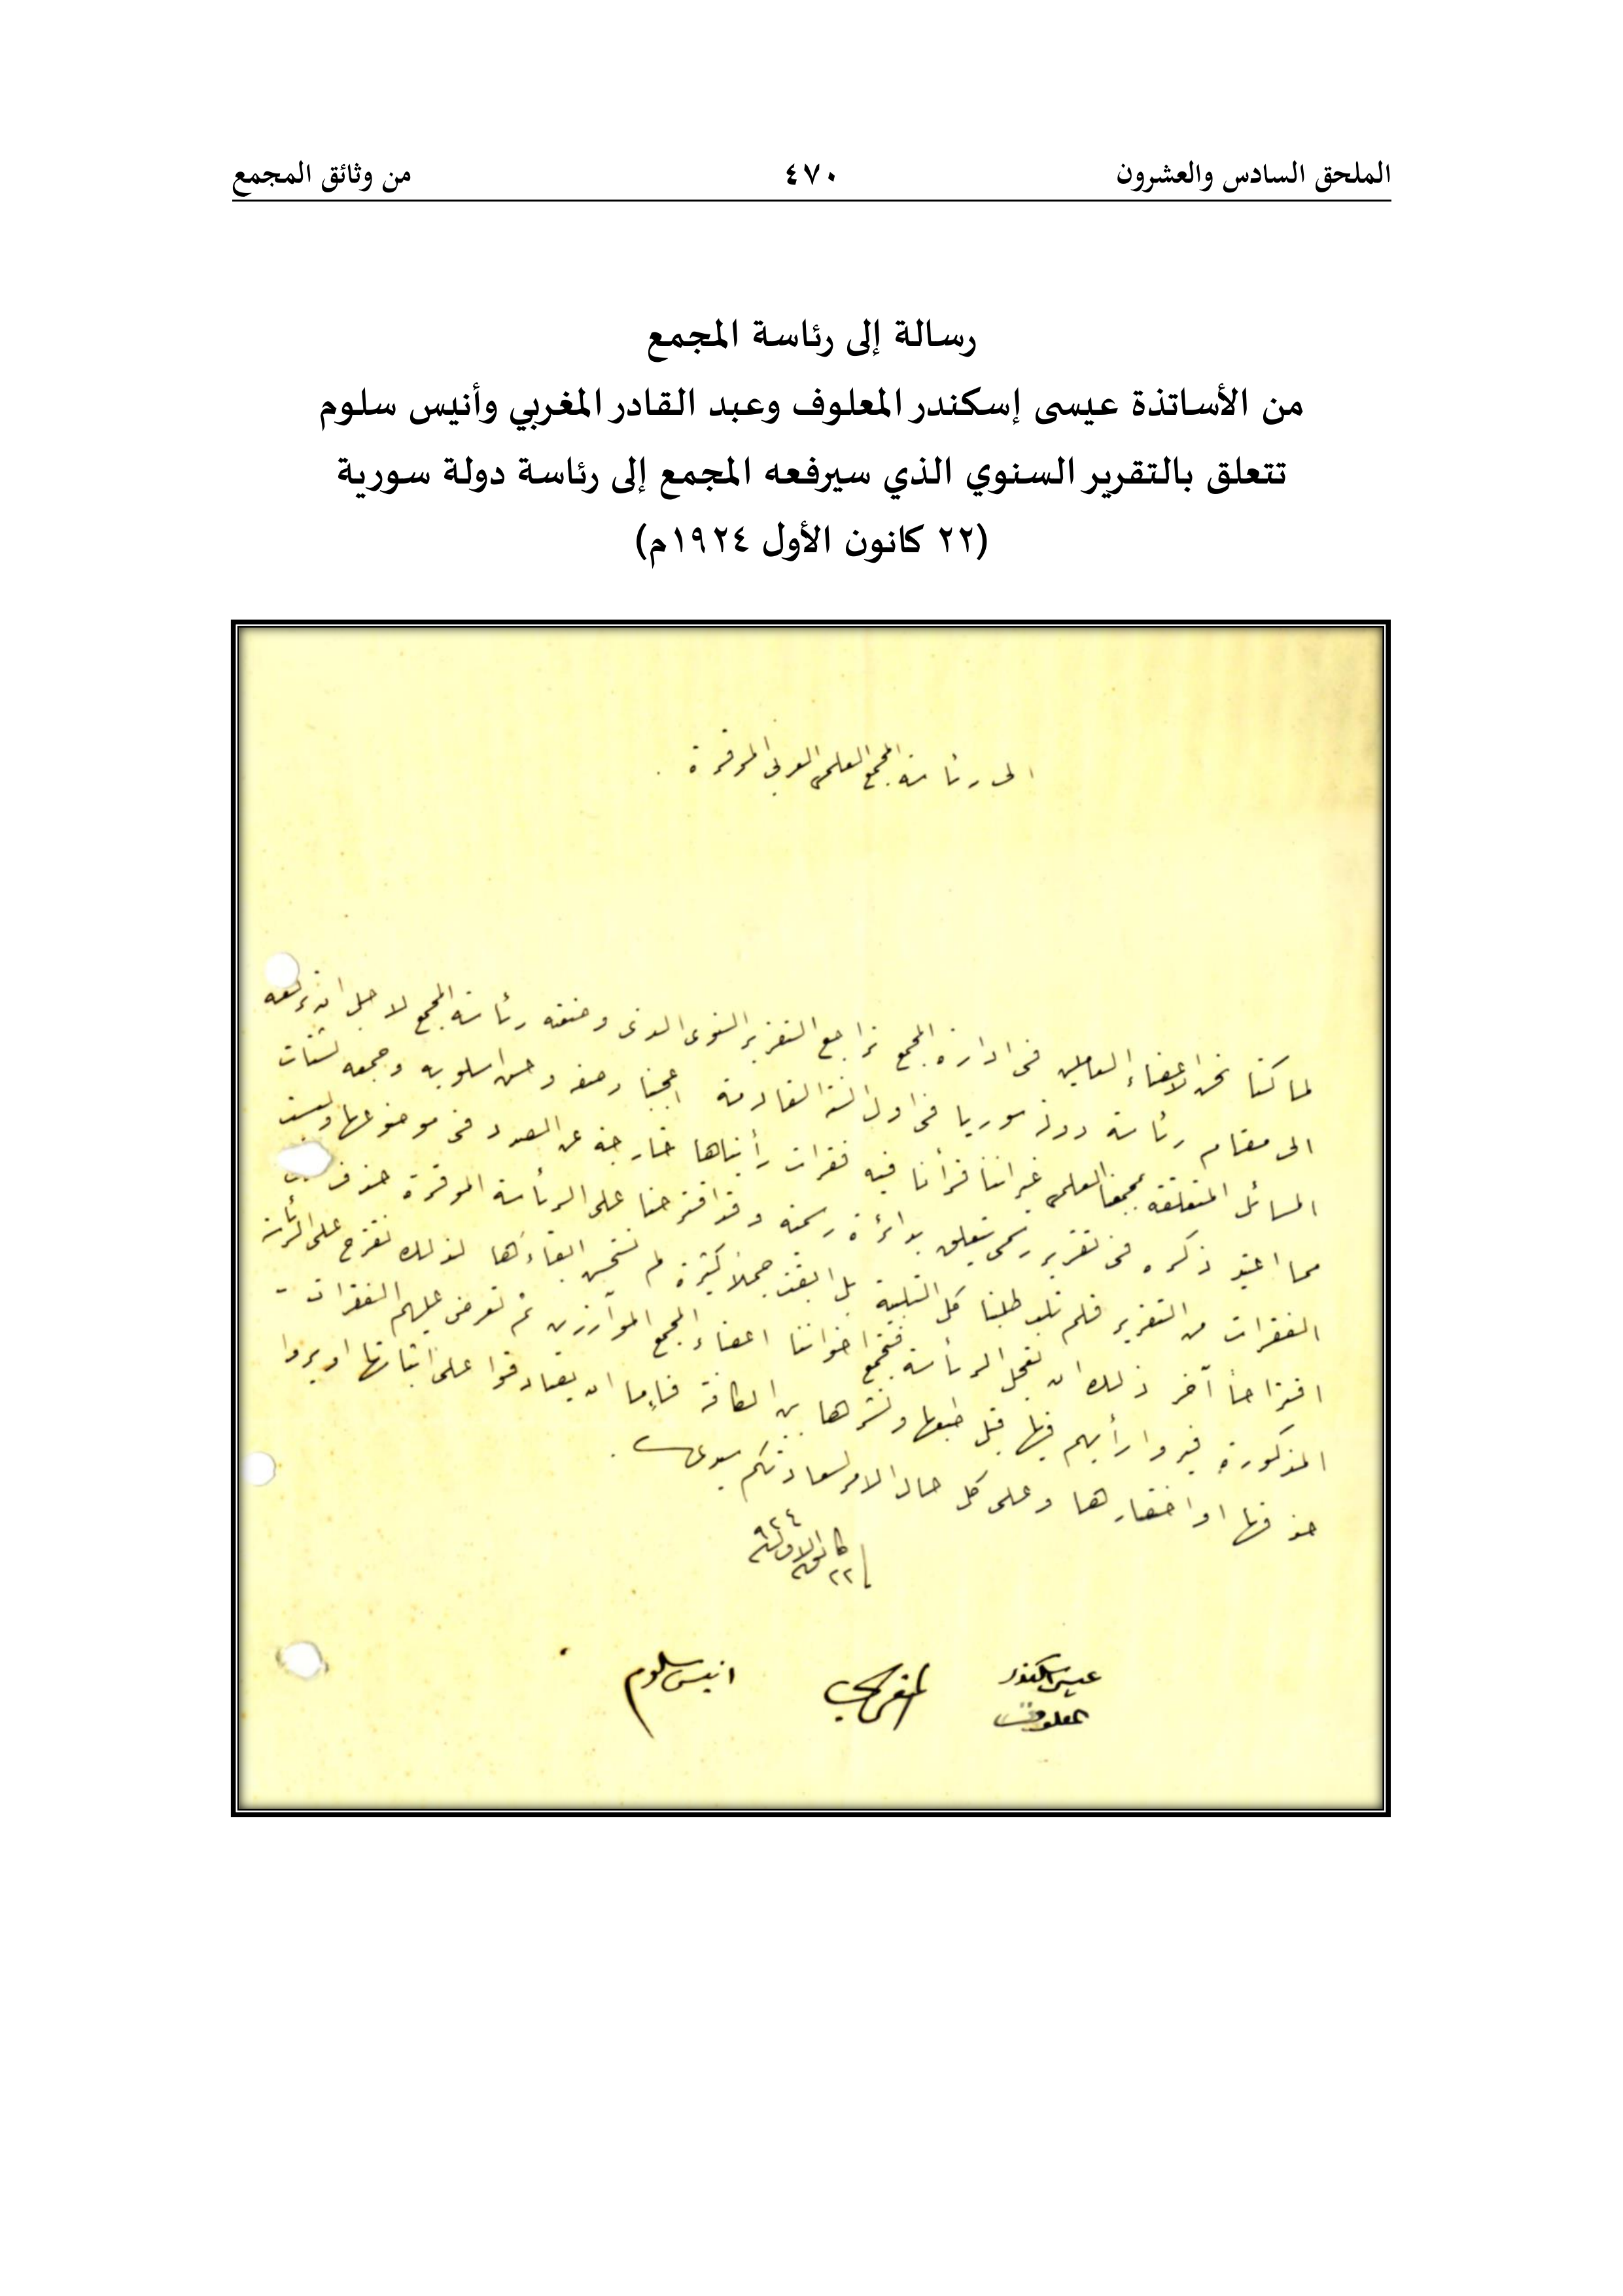 الملحق السادس والعشرون ٤٧٠ من وثائق المجمع
رسالة إلى رئاسة المجمع
من الأساتذة عيسى إسكندر المعلوف وعبد القادر المغربي وأنيس سلوم
تتعلق بالتقرير السنوي الذي سيرفعه المجمع إلى رئاسة دولة سورية
(٢٢ كانون الأول ١٩٢٤م)
الى رئاسة المجمع العلمي العربي الموقرة .
لما كنا نحن الاعضاء العاملين في ادارة المجمع نراجع التقرير السنوي الذي وضعته رئاسة المجمع لاجل ان ترفعه
الى مقام رئاسة دولة سوريا في اول السنة القادمة اعجبنا وصفه وحسن اسلوبه وجمعه لشتات
المسائل المتعلقة بمجمعنا العلمي غير اننا قرأنا فيه فقرات رأيناها خارجة عن الصدد في موضوعها وليست
مما اعتيد ذكره في تقرير رسمي يتعلق بدائرة رسمية وقد اقترحنا على الرئاسة الموقرة حذف
الفقرات من التقرير فلم تلب طلبنا كل التلبية بل ابقت جملاً كثيرة لم نستحسن ابقاءها لذلك نقترح على الرئاسة
اقتراحاً آخر ذلك ان تعجل الرئاسة فتجمع اخواننا اعضاء المجمع الموآزرين ثم تعرض عليهم الفقرات
المذكورة فيروا رأيهم فيها قبل طبعها ونشرها بين الكافة فإما ان يصادقوا على اثباتها او يروا
حذفها او اختصارها وعلى كل حال الامر لسعادتكم سيدي .
٢٢ كانون الاول سنة ٩٢٤
عيسى اسكندر المعلوف
المغربي
انيس سلوم